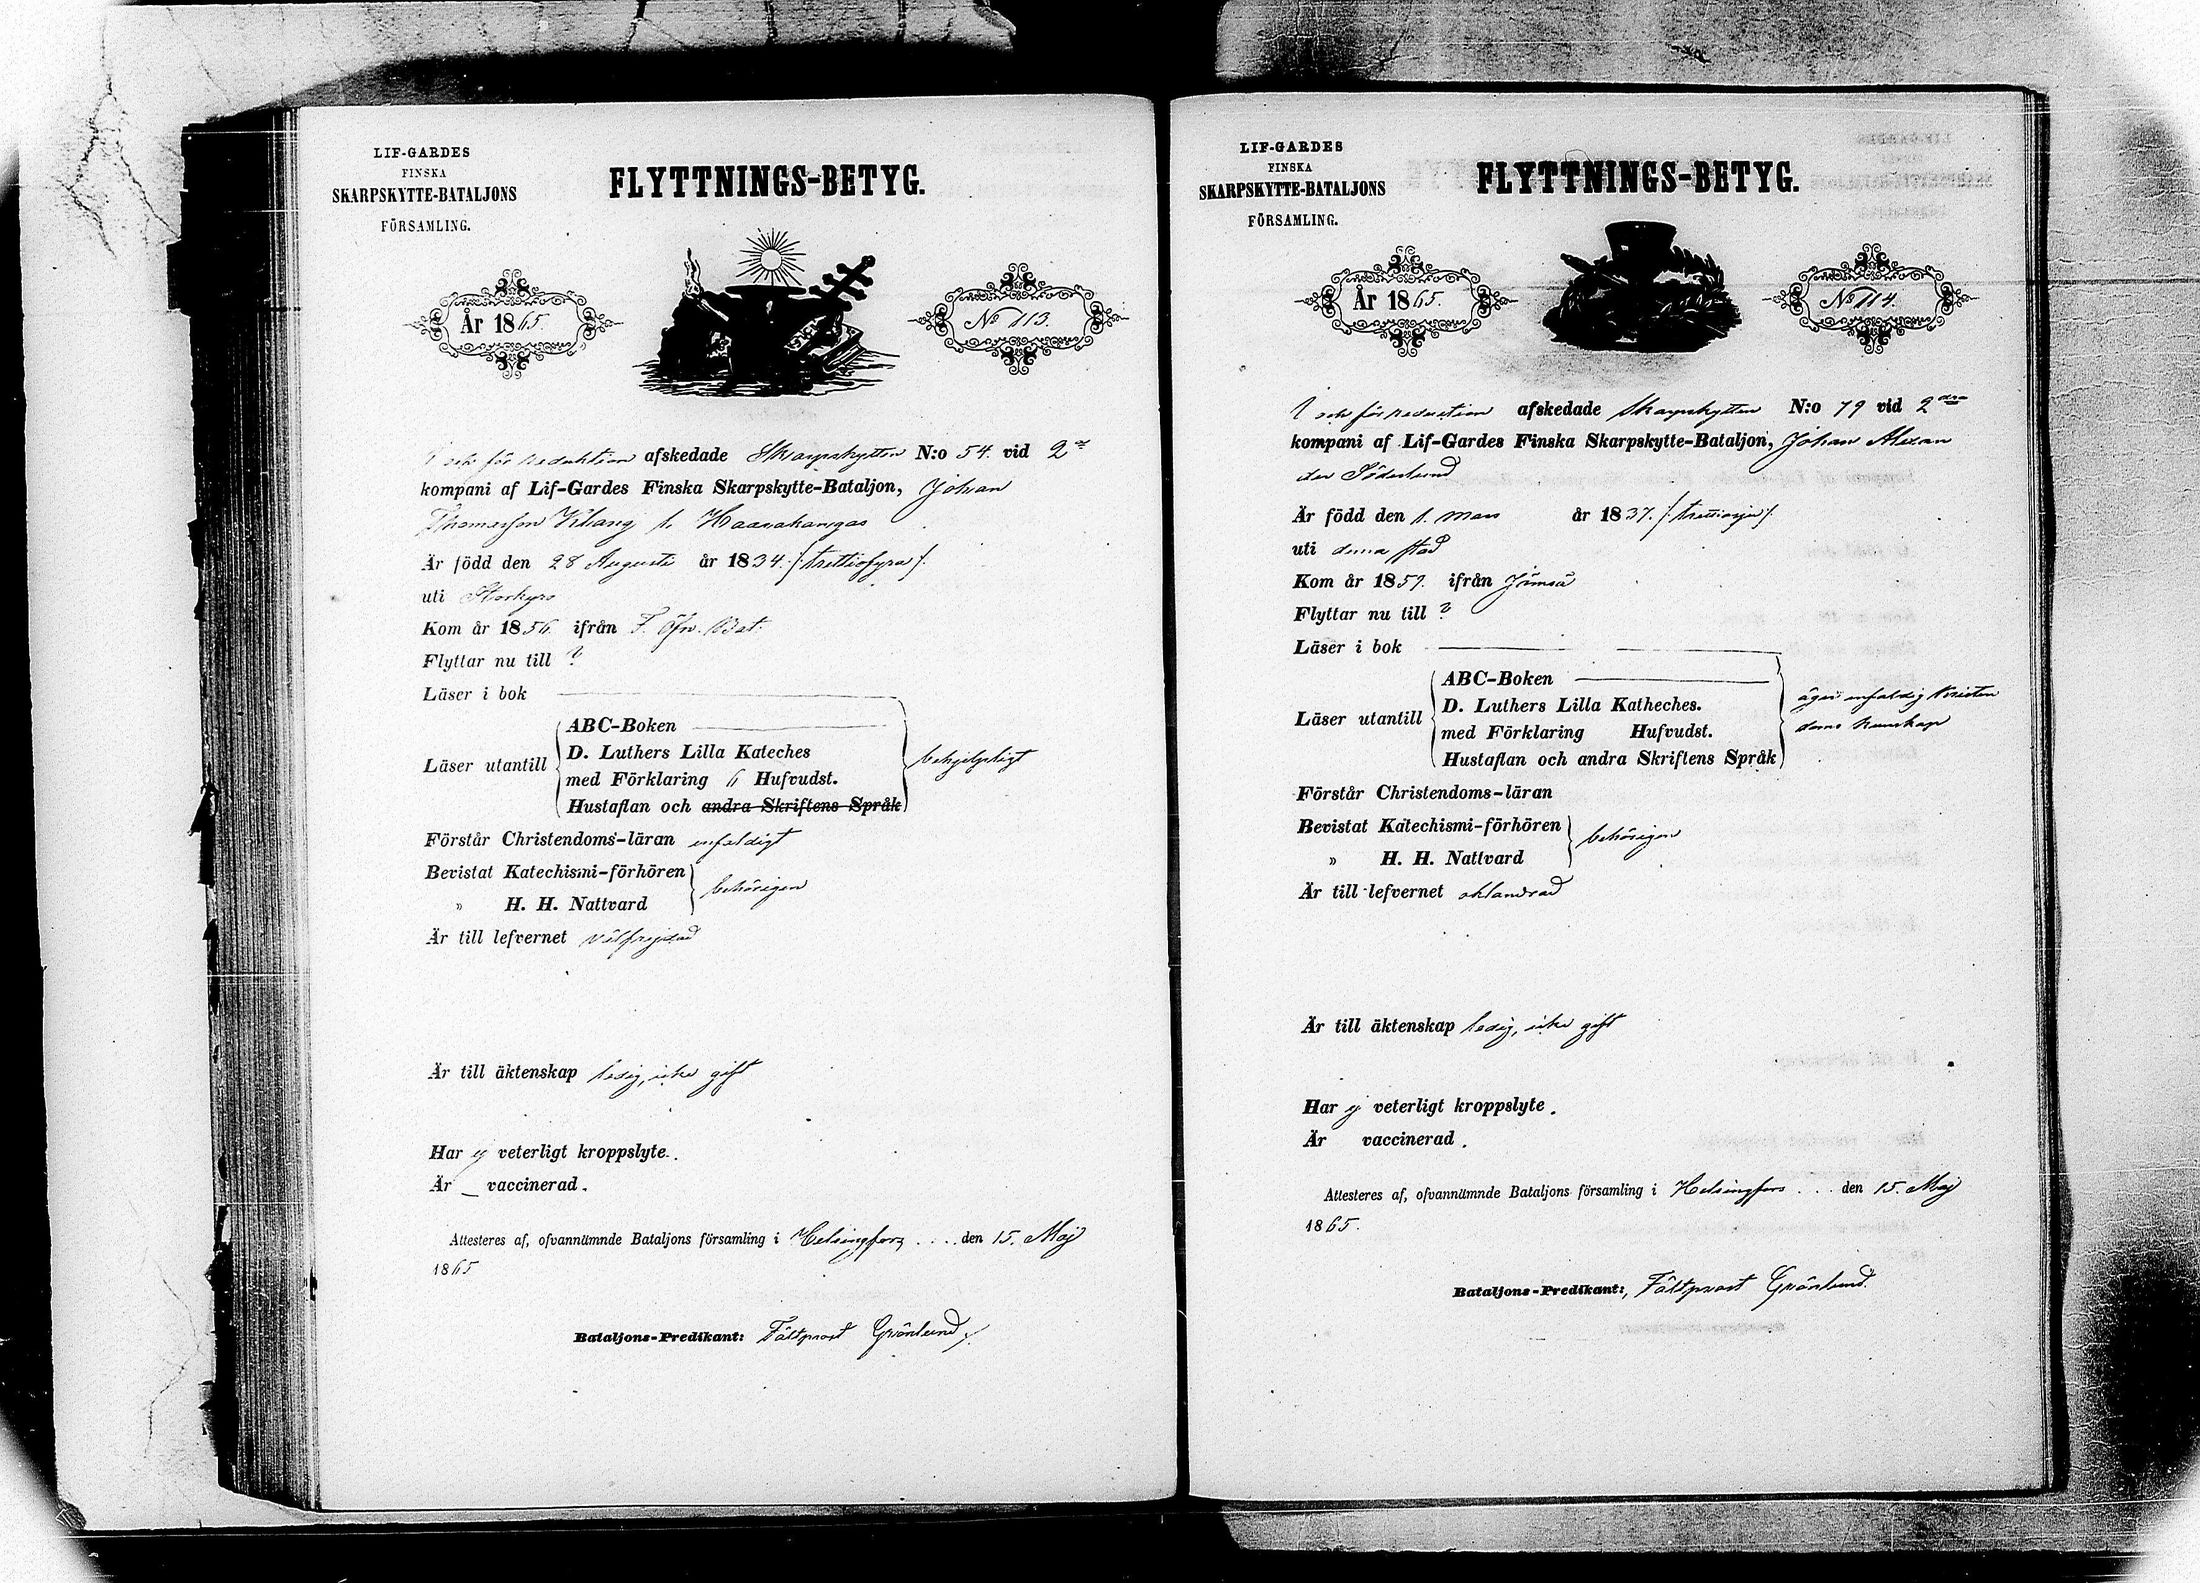 LIF-GARDES
FINSKA
SKARPSKYTTE-BATALJONS
FÖRSAMLING.
FLYTTNINGS-BETYG.
År 1865.
No 113.
I och för reduktion afskedade Skarpskytten N:o 54. vid 2a
kompani af Lif-Gardes Finska Skarpskytte-Bataljon, Johan
Thomasson Klang
Är född den 28 Augusti år 1834. /: trettiofyra /:
uti Storkyro
Kom år 1856. ifrån F. Öfn. Bat.
Flyttar nu till ?
Läser i bok
ABC-Boken
Läser utantill
D. Luthers Lilla Kateches
med Förklaring 6 Hufvudst.
behjelpligt
Hustaflan och andra Skriftens Språk
Förstår Christendoms-läran enfaldigt
Bevistat Katechismi-förhören
behörigen
» H. H. Nattvard
Är till lefvernet välfrejdad
Är till äktenskap ledig, icke gift
Har ej veterligt kroppslyte.
Är vaccinerad.
Attesteres af, ofvannämnde Bataljons församling i Helsingfors .... den 15. Maj
1865
Bataljons-Predikant: Fältprost Grönlund
LIF-GARDES
FINSKA
SKARPSKYTTE-BATALJONS
FÖRSAMLING.
FLYTTNINGS-BETYG.
År 1865.
No 114.
I och för reduction afskedade Skarpskytten N:o 79 vid 2dra
kompani af Lif-Gardes Finska Skarpskytte-Bataljon, Johan Alexan
der Söderlund
Är född den 1. Mars år 1837. /: trettiosju /:
uti denna stad
Kom år 1857. ifrån Jämsä
Flyttar nu till ?
Läser i bok
ABC-Boken
Läser utantill
D. Luthers Lilla Katheches.
med Förklaring Hufvudst.
äger enfaldig Kristen
doms kunskap
Hustaflan och andra Skriftens Språk
Förstår Christendoms-läran
Bevistat Katechismi-förhören
behörigen
» H. H. Nattvard
Är till lefvernet oklandrad
Är till äktenskap ledig, icke gift
Har ej veterligt kroppslyte.
Är vaccinerad.
Attesteres af, ofvannämnde Bataljons församling i Helsingfors ... den 15. Maj
1865.
Bataljons-Predikant: Fältprost Grönlund.